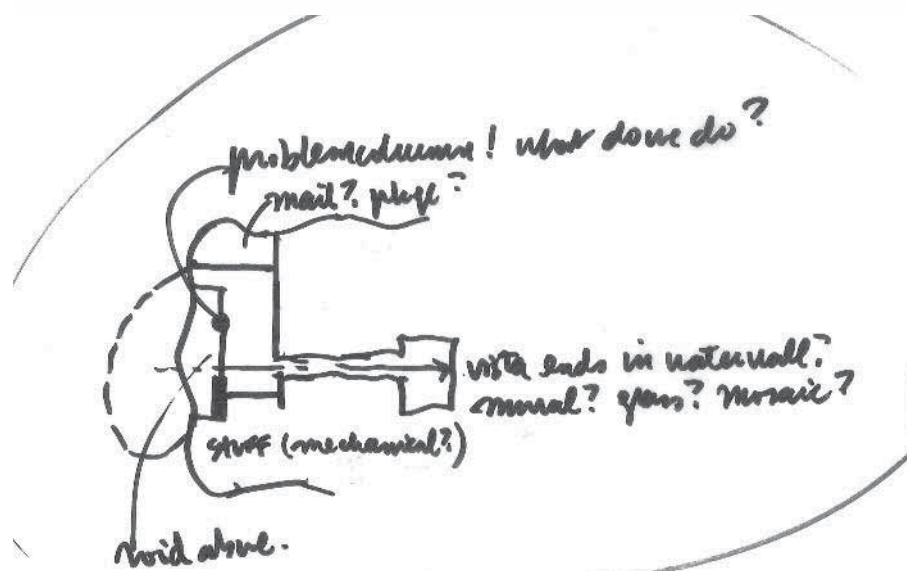 problem column! what do we do?
mail? pkge?
vista ends in waterwall?
mural? glass? mosaic?
stuff (mechanical?)
void above.